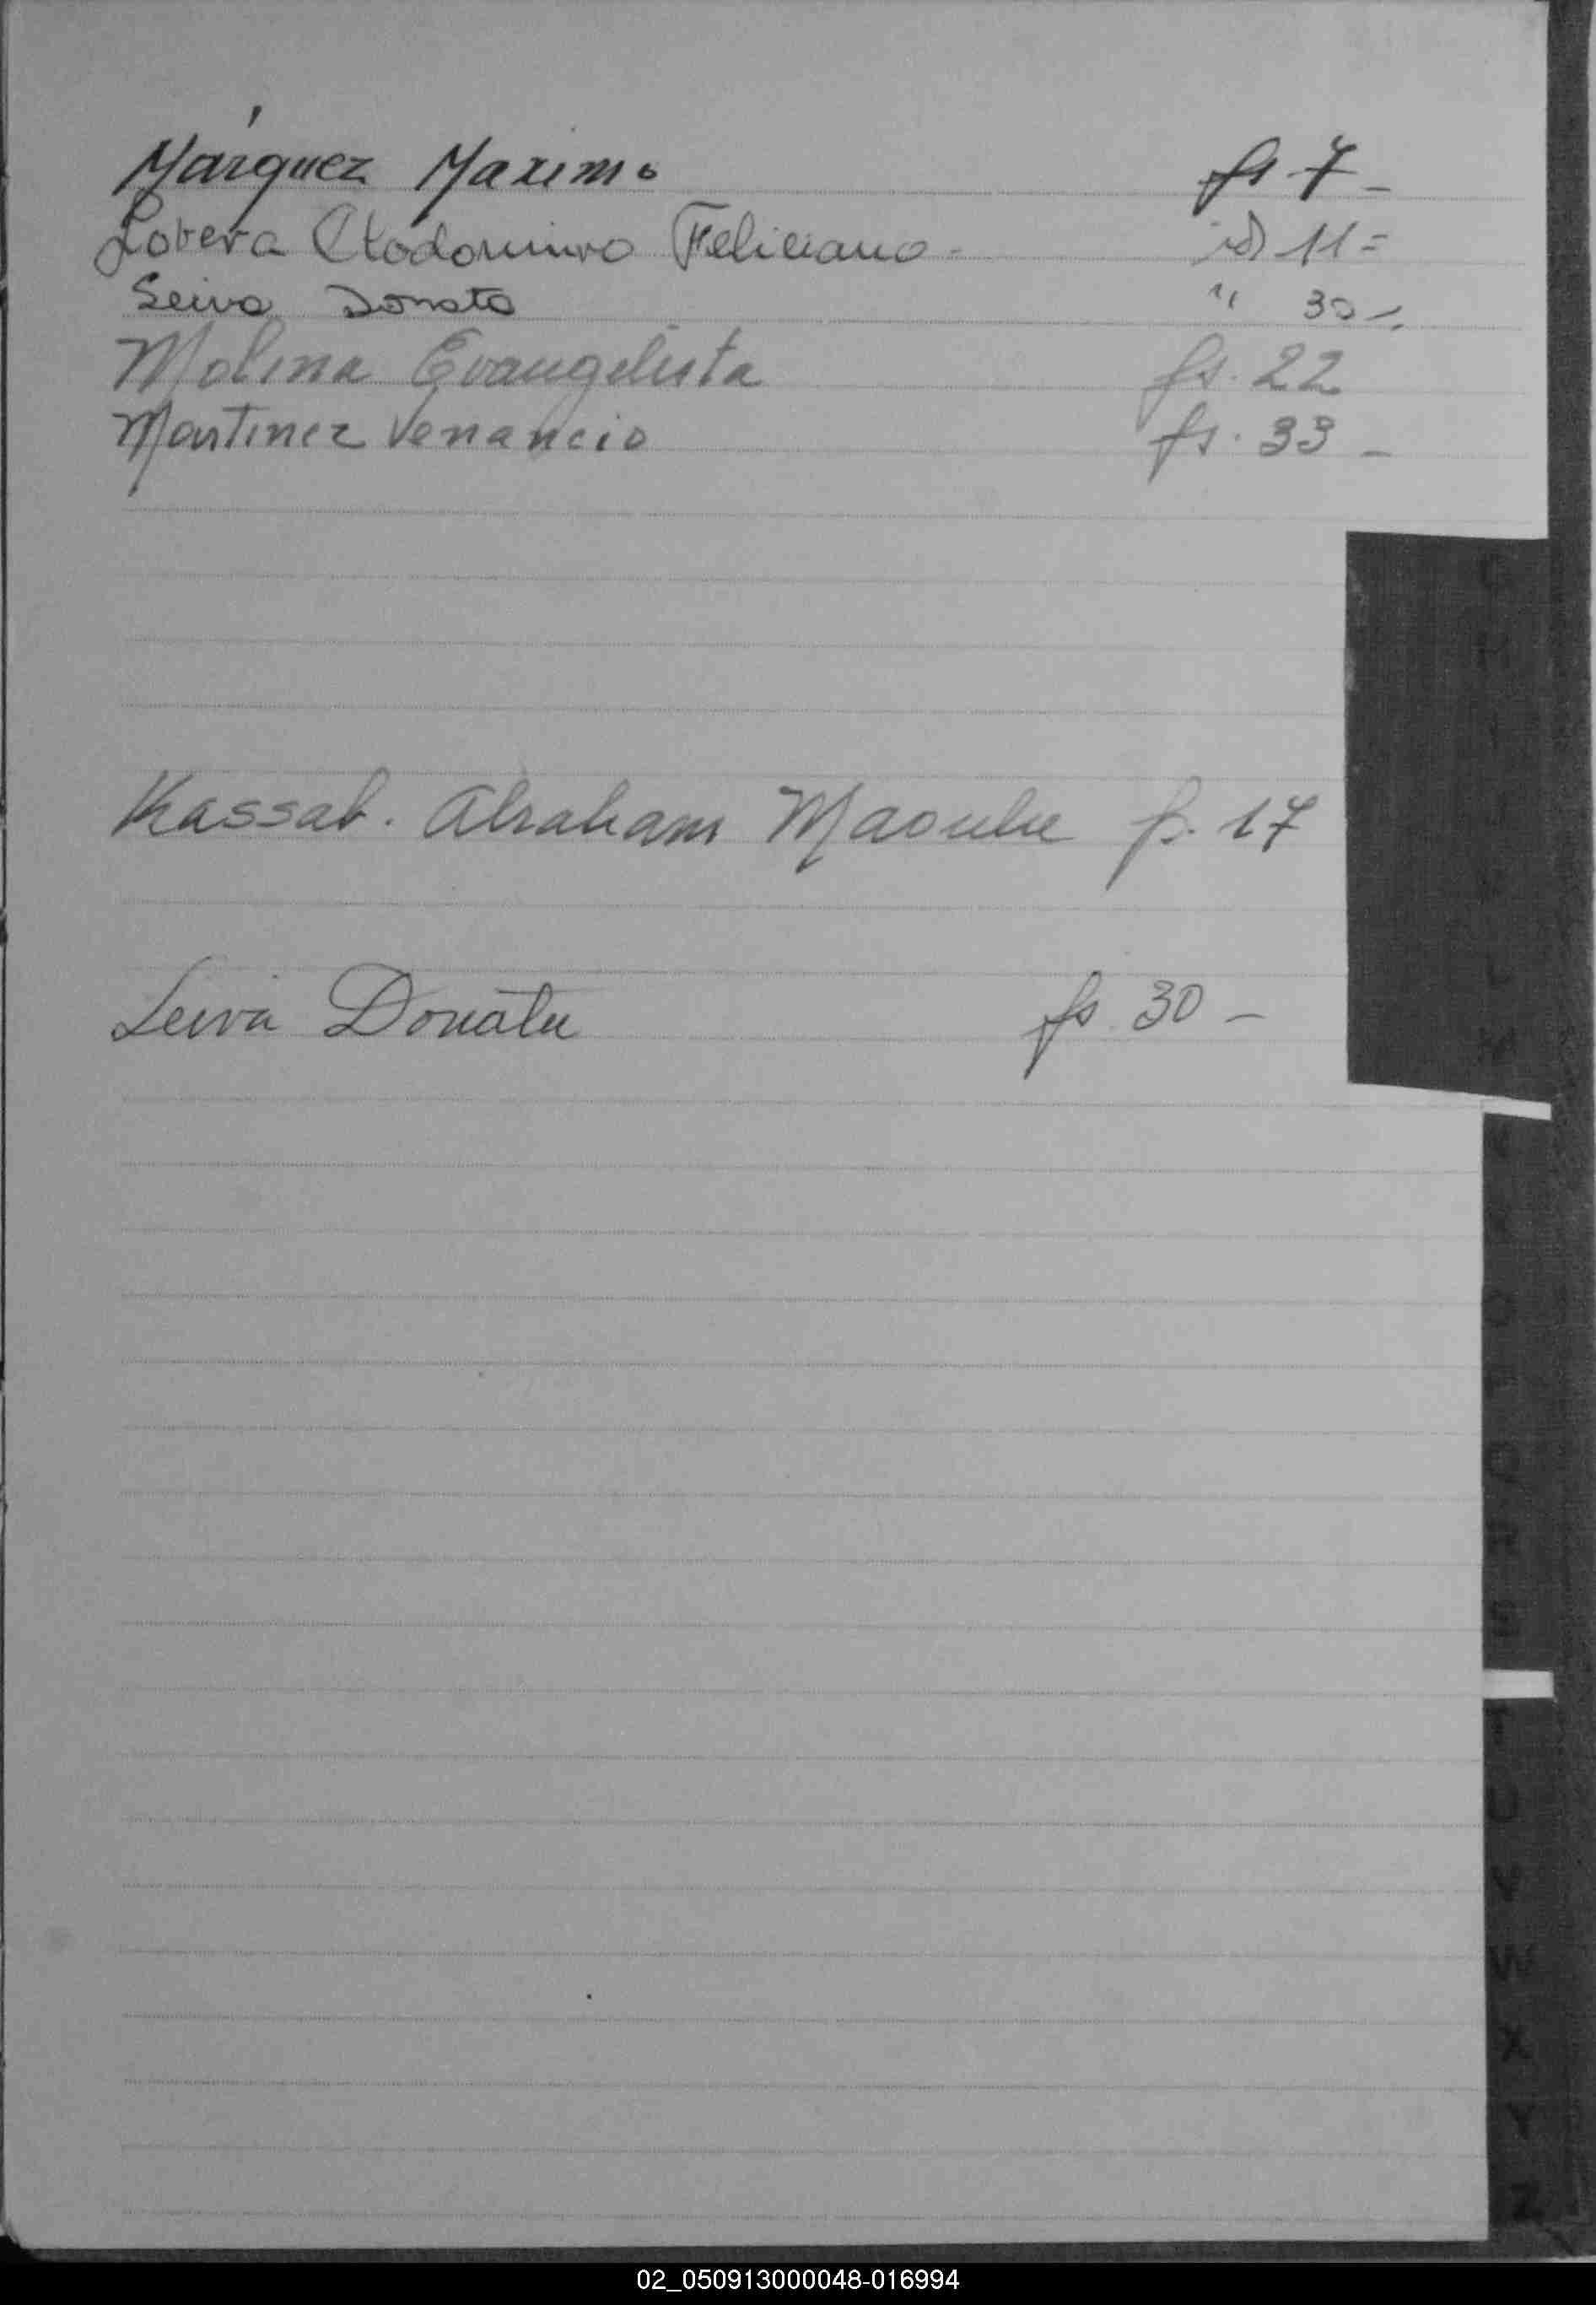 Márquez Maximo fs 7 -
Lovera Clodomiro Feliciano - id 11 =
Leiva Donato " 30 -
Molina Evangelista fs. 22
Martinez Venancio fs. 33 -
Kassab. Abraham f. 17
Leiva Donato fs. 30 -
O
P
Q
R
S
T
U
V
W
X
Y
Z
02_050913000048-016994